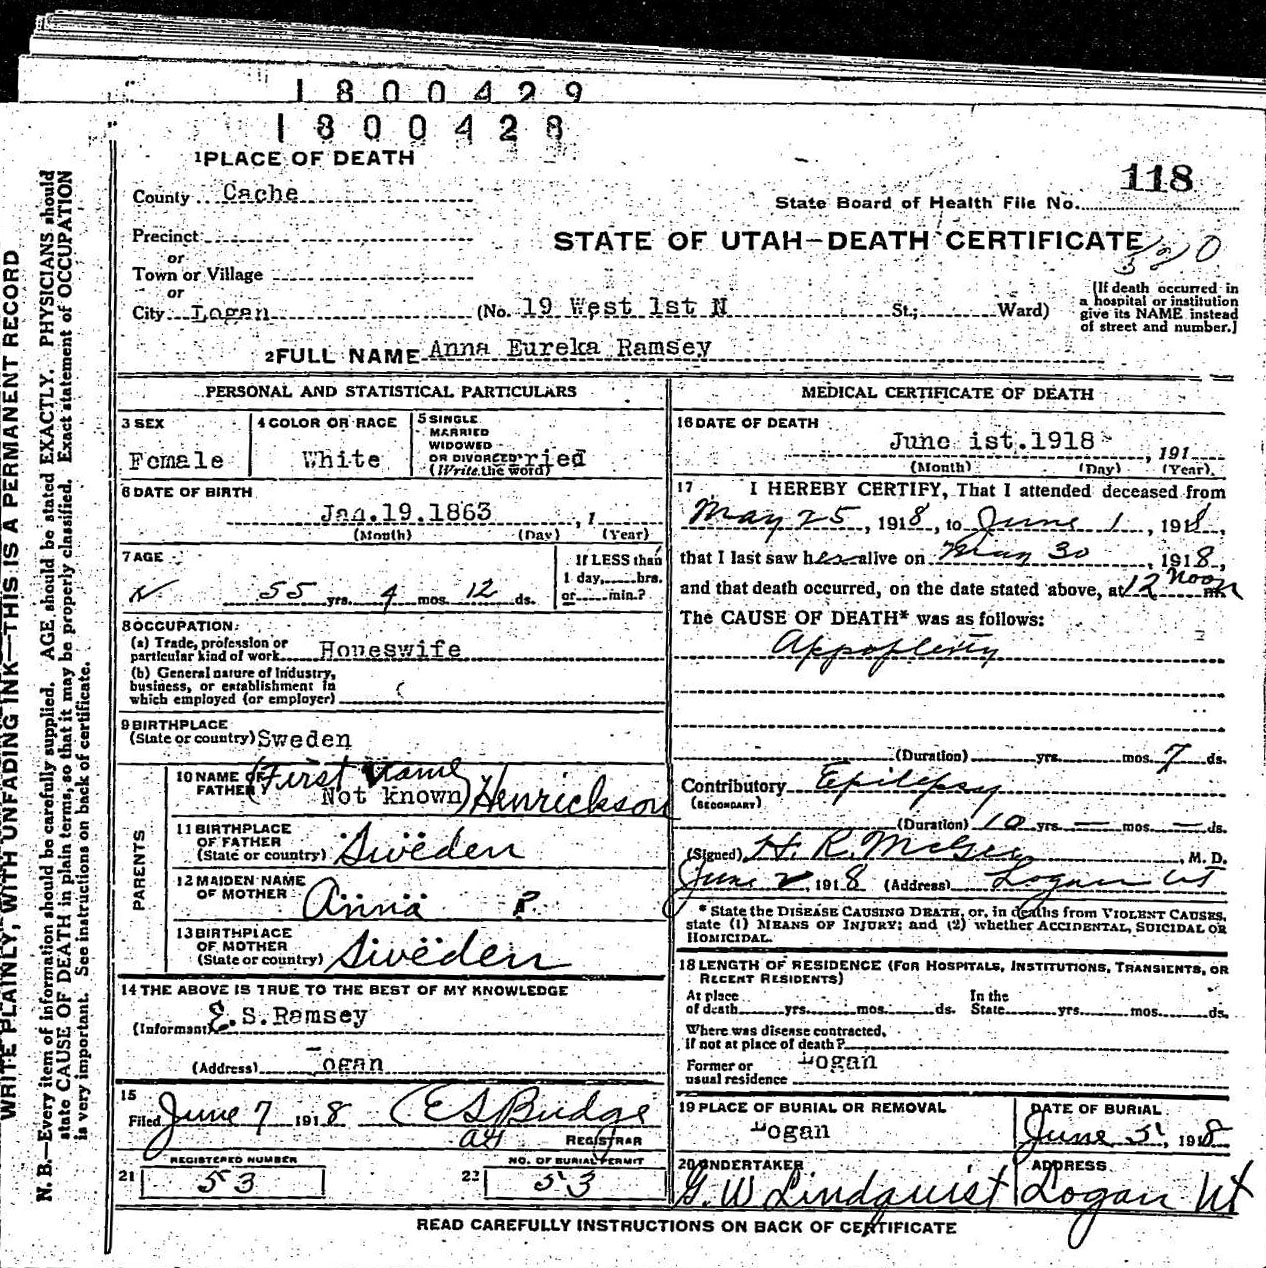 1800429
1800428
1 PLACE OF DEATH
118
County Cache
State Board of Health File No.
Precinct
STATE OF UTAH—DEATH CERTIFICATE
or
Town or Village
or
City Logan (No. 19 West 1st N St.; Ward)
(If death occurred in
a hospital or institution
give its NAME instead
of street and number.)
2 FULL NAME Anna Eureka Ramsey
PERSONAL AND STATISTICAL PARTICULARS
3 SEX
Female
4 COLOR OR RACE
White
5 SINGLE
MARRIED
WIDOWED
OR DIVORCED ried
(Write the word)
6 DATE OF BIRTH
Jan.19.1863, 1
(Month) (Day) (Year)
7 AGE
55 yrs. 4 mos. 12 ds.
If LESS than
1 day, hrs.
or min.?
8 OCCUPATION:
(a) Trade, profession or
particular kind of work Houeswife
(b) General nature of Industry,
business, or establishment in
which employed (or employer)
9 BIRTHPLACE
(State or country) Sweden
PARENTS
10 NAME OF
FATHER (First name
Not known) Henrickson
11 BIRTHPLACE
OF FATHER
(State or country) Sweden
12 MAIDEN NAME
OF MOTHER Anna ?
13 BIRTHPLACE
OF MOTHER
(State or country) Sweden
14 THE ABOVE IS TRUE TO THE BEST OF MY KNOWLEDGE
(Informant) E.S.Ramsey
(Address) ogan
15
Filed June 7 1918 E S Budge
REGISTRAR
REGISTERED NUMBER
21 53
NO. OF BURIAL PERMIT
22 53
MEDICAL CERTIFICATE OF DEATH
16 DATE OF DEATH
June 1st.1918, 191
(Month) (Day) (Year)
17 I HEREBY CERTIFY, That I attended deceased from
May 25, 1918, to June 1, 1918,
that I last saw her alive on May 30, 1918,
and that death occurred, on the date stated above, at 12 Noon m.
The CAUSE OF DEATH* was as follows:
Appoplexty
(Duration) yrs. mos. 7 ds.
Contributory Epilepsy
(SECONDARY)
(Duration) 10 yrs. — mos. — ds.
(Signed) H. R. McGee, M. D.
June 2, 1918 (Address) Logan Ut
* State the DISEASE CAUSING DEATH, or, in deaths from VIOLENT CAUSES,
state (1) MEANS OF INJURY; and (2) whether ACCIDENTAL, SUICIDAL OR
HOMICIDAL.
18 LENGTH OF RESIDENCE (FOR HOSPITALS, INSTITUTIONS, TRANSIENTS, OR
RECENT RESIDENTS)
At place
of death yrs. mos. ds.
In the
State yrs. mos. ds.
Where was disease contracted,
if not at place of death?
Former or
usual residence Logan
19 PLACE OF BURIAL OR REMOVAL
Logan
DATE OF BURIAL
June 5, 1918
20 UNDERTAKER
G. W Lindquist
ADDRESS
Logan Ut
READ CAREFULLY INSTRUCTIONS ON BACK OF CERTIFICATE
WRITE PLAINLY, WITH UNFADING INK—THIS IS A PERMANENT RECORD
N. B.—Every item of information should be carefully supplied. AGE should be stated EXACTLY. PHYSICIANS should
state CAUSE OF DEATH in plain terms, so that it may be properly classified. Exact statement of OCCUPATION
is very important. See instructions on back of certificate.